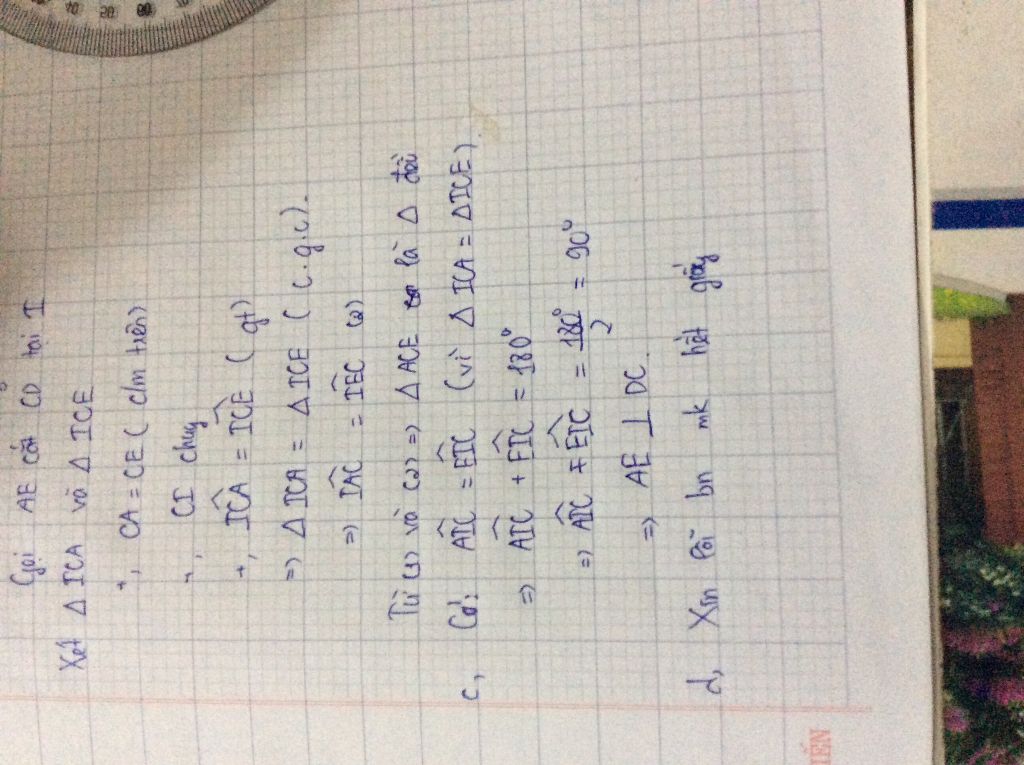 Gọi AE cắt CD tại I
Xét Δ ICA và Δ ICE
+, CA = CE ( c/m trên)
+, CI chug
+, ICA = ICE ( gt)
=> Δ ICA = Δ ICE ( c.g.c).
=> IAC = IEC (2)
Từ (1) và (2) => Δ ACE là Δ đều
c, Có: AIC = EIC (vì Δ ICA = ΔICE)
=> AIC + EIC = 180°
=> AIC = EIC = 180°/2 = 90°
=> AE ⊥ DC.
d, Xin lỗi bn mk hết giấy